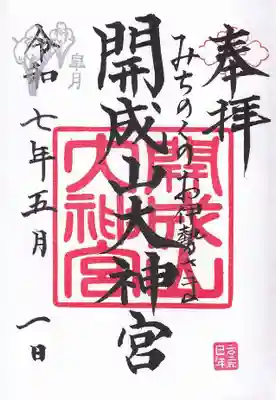 奉拝
みちのくのお伊勢さま
開成山大神宮
皐月
令和七年五月一日
開成山
大神宮
巳年